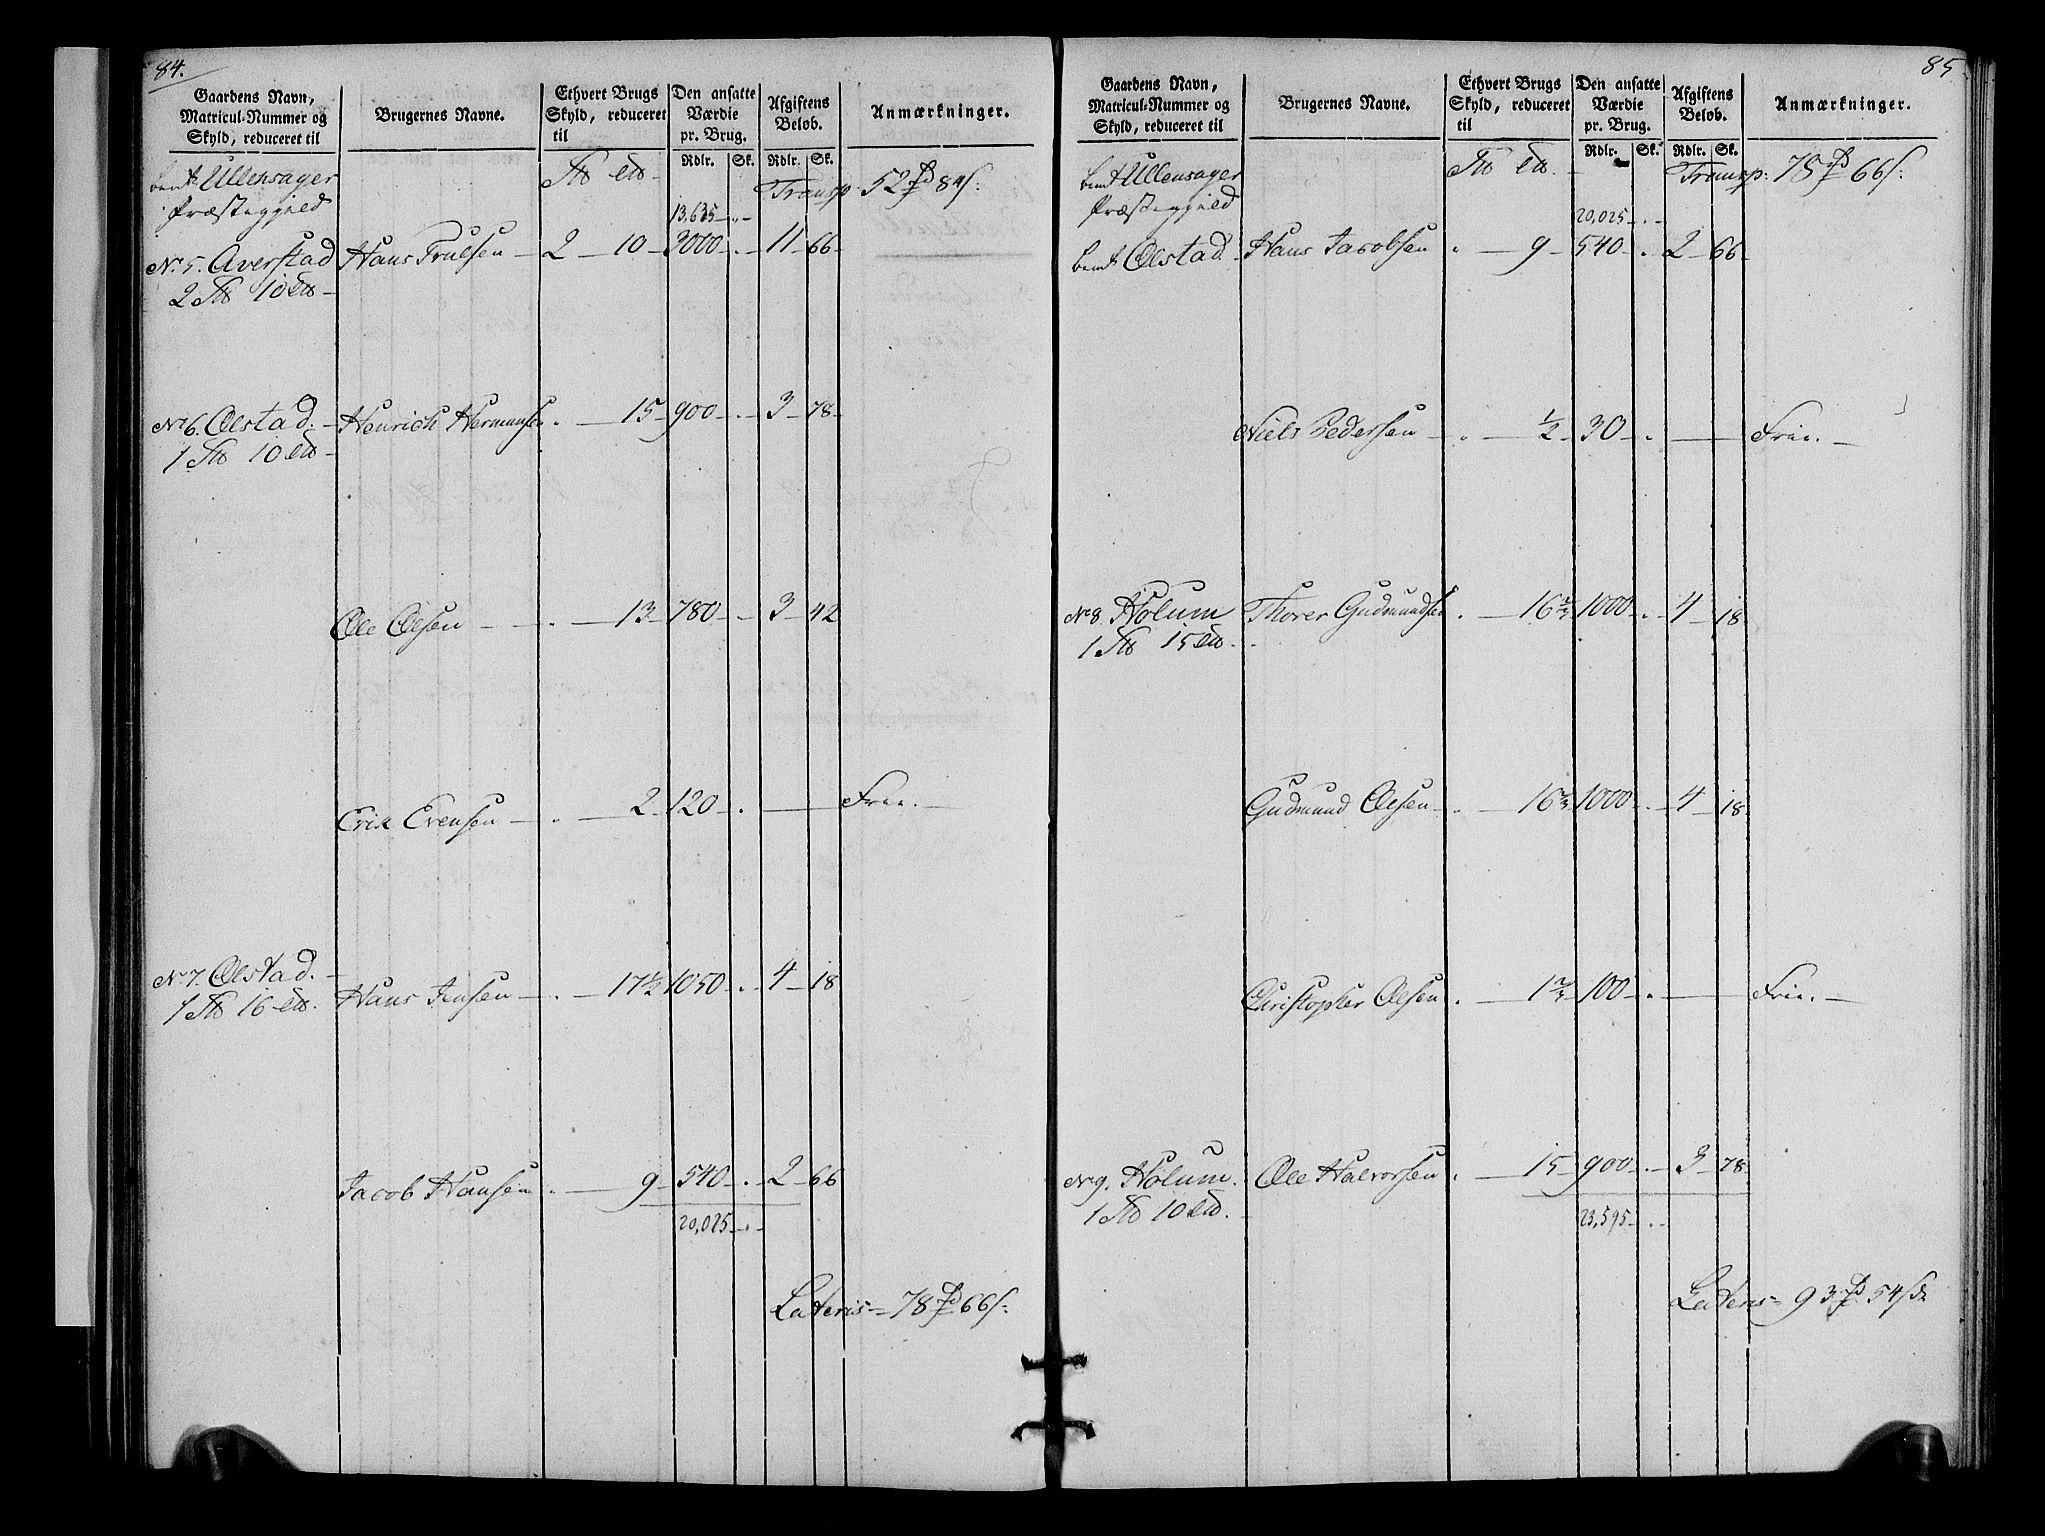 84.
Gaardens Navn, Matricul-Nummer og Skyld, reduceret til | Brugernes Navne. | Ethvert Brugs Skyld, reduceret til | Den ansatte Værdie pr. Brug. | Afgiftens Beløb. | Anmærkninger.
Rdlr. Sk. Rdlr. Sk.
bemt Ullensager Præstegjeld 13,635 Transp 52 84 s:
No 5. Averstad Hans Trulsen 2 10 3000 11 66
2 10
No 6. Ølstad. Henrich Hermansen 15 900 3 78
1 10
Ole Olsen 13 780 3 42
Erik Evensen 2 120 Frie.
No 7. Ølstad. Hans Jensen 17 1/2 1050 4 18
1 16
Jacob Hansen 9 540 2 66
20,025
Lateris 78 66 s:
85
Gaardens Navn, Matricul-Nummer og Skyld, reduceret til | Brugernes Navne. | Ethvert Brugs Skyld, reduceret til | Den ansatte Værdie pr. Brug. | Afgiftens Beløb. | Anmærkninger.
Rdlr. Sk. Rdlr. Sk.
bemt Ullensager Præstegjeld 20,025 Transp: 78 66 s:
bemt Ølstad Hans Jacobsen 9 540 2 66
Niels Pedersen 1/2 30 Frie.
No 8. Holum Thorer Gudmundsen 16 2/3 1000 4 18
1 15
Gudmund Olsen 16 2/3 1000 4 18
Christopher Olsen 1 2/3 100 Frie.
No 9. Holum. Ole Halvorsen 15 900 3 78
1 10
23,595
Lateris 93 54